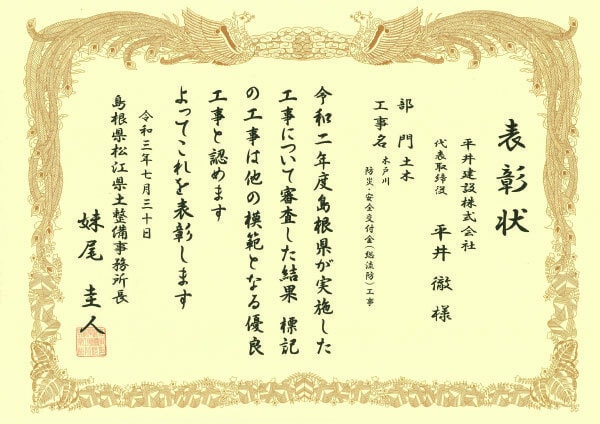 表彰状
平井建設株式会社
代表取締役 平井 徹 様
部 門 土木
工事名 木戸川
防災・安全交付金(総流防)工事
令和二年度島根県が実施した
工事について審査した結果 標記
の工事は他の模範となる優良
工事と認めます
よってこれを表彰します
令和三年七月三十日
島根県松江県土整備事務所長
妹尾 圭人